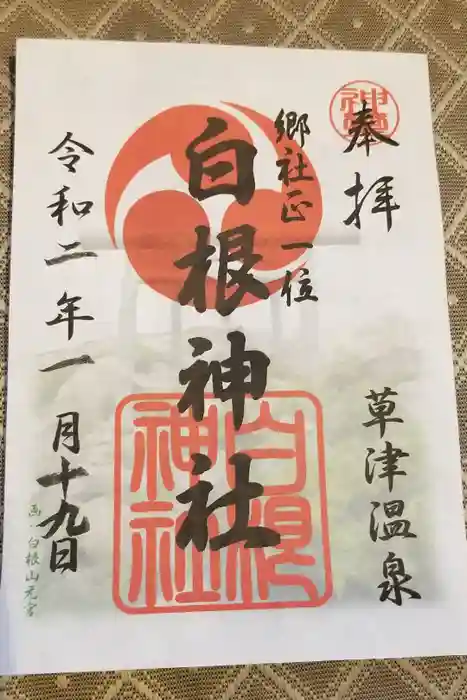 奉拝
草津温泉
郷社正一位
白根神社
白根神社
令和二年一月十九日
画・白根山元宮